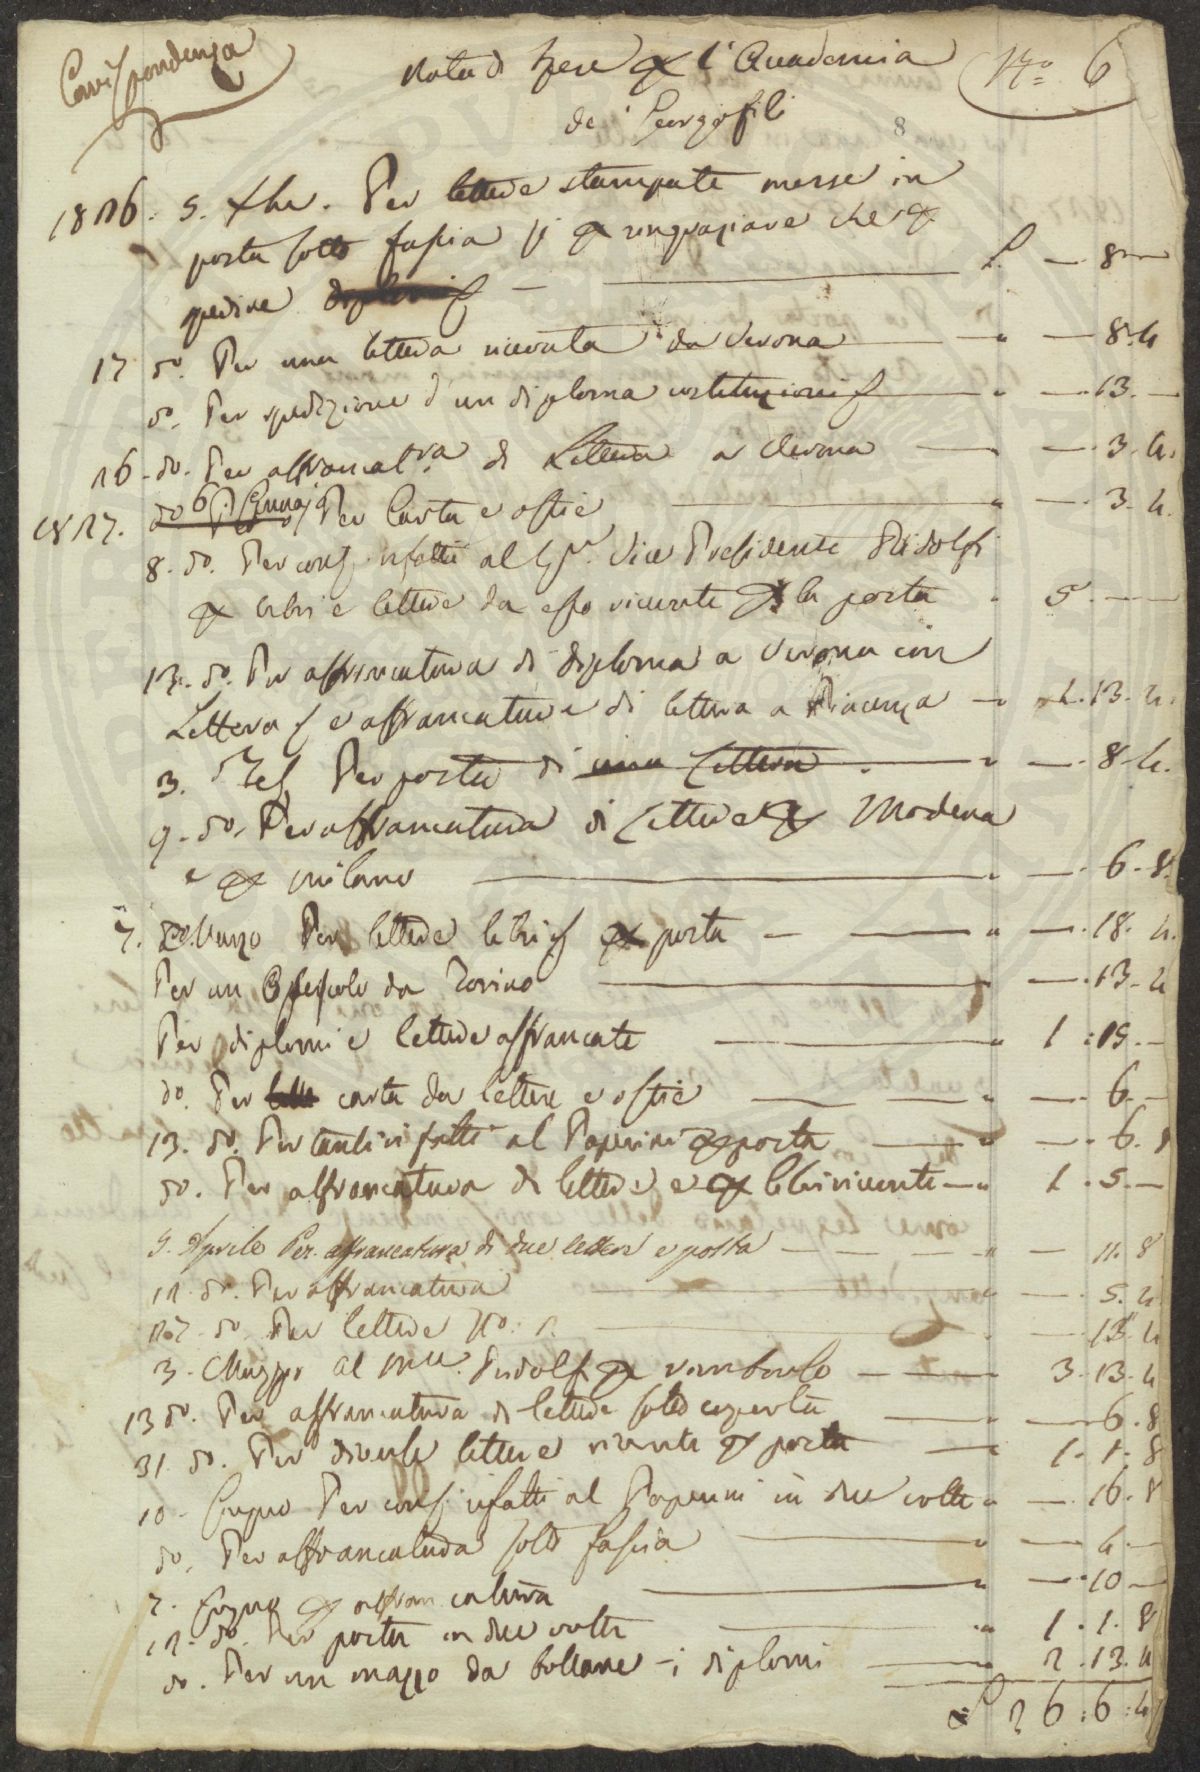 Corrispondenza
Nota di Spese p l'Accademia
No. 6
de' Georgofili
8
1826. 5. Xbre. Per lettere stampate messe in
posta sotto fascia p ringraziare che p
spedire L. — 8 —
17 do. Per una lettera ricevuta da Verona " — 8. 4
do. Per spedizione d'un diploma " — 13. —
26 - do. Per affrancatra di Lettera a Verona — — 3. 4.
1827. 6. Gennajo Per Carta e ostie " — 3. 4.
8. do. Per rifatti al Sigr. Vice Presidente Ridolfi
p libri e lettere da esso ricevute p la posta " 5 — —
13. do. Per affrancatura di diploma a Verona con
Lettera e affrancatura di lettera a Piacenza — 13. 4.
3. Per posta di una Lettera " — 8. 4.
9. do. Per affrancatura di Lettere p Modena
e p Milano " — 6. 8.
7. Marzo Per lettere libri p posta — " — 18. 4.
Per un Opuscolo da Torino " — 13. 4
Per diplomi e lettere affrancate " 1. 15. —
do. Per carta da lettere e ostie " — 6. —
13. do. Per tanti rifatti al Paperini p posta " — 6. 8
do. Per affrancatura di lettere e p libri ricevute — " 1. 5. —
9. Aprile Per affrancatura di due lettere e posta — " — 11. 8
12. do. Per affrancatura " — 5. 4
27. do. Per lettere No. 2. — 13. 4
3. Maggio al Ridolfi p rimborso — 3. 13. 4
13 do. Per affrancatura di lettere sotto coperta — 6. 8
31. do. Per diverse lettere ricevute p posta — 1. 1. 8
10. Giugno Per rifatti al Paperini in due volte " — 16. 8
do. Per affrancatura sotto fascia " — 4 —
2. Giugno p affrancatura " — 10 —
12. do. Per posta in due volte " 1. 1. 8
do. Per un mazzo da bollare i diplomi " 2. 13. 4
L 26. 6. 4